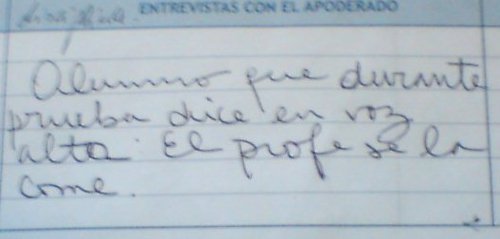 ENTREVISTAS CON EL APODERADO
Alumno que durante
prueba dice en voz
alta: El profe se la
come.